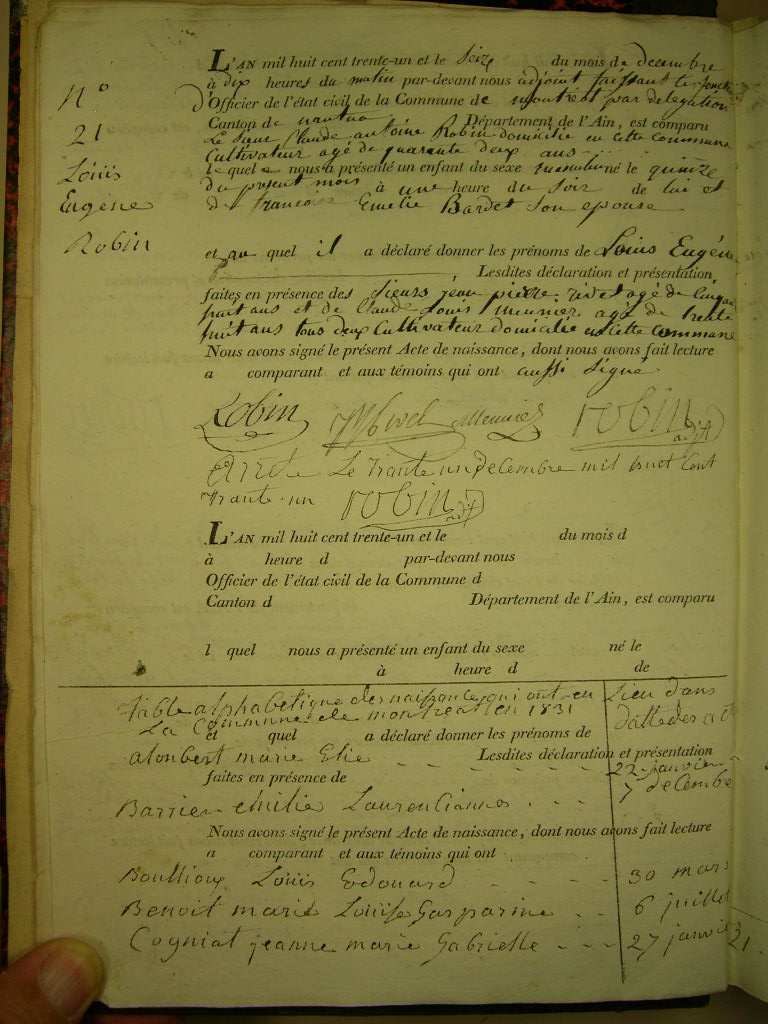 N.o
21
Louis
Eugène
Robin
L'AN mil huit cent trente-un et le Seize du mois de decembre
à dix heures du matin par-devant nous adjoint faissant les fonct
d'Officier de l'état civil de la Commune de montreat par delegation
Canton de nantua Département de l'Ain, est comparu
Le Sieur Claude antoine Robin domicilié en cette commune
Cultivateur agé de quarante deux ans
le quel a nous a présenté un enfant du sexe masculin né le quinze
du present mois à une heure du Soir de lui et
de francoise Emelie Bardet Son epouse
et au quel il a déclaré donner les prénoms de Louis Eugène
Lesdites déclaration et présentation
faites en présence des Sieurs jean pierre rivet agé de Cinquan
huit ans et de Claude Louis meunier agé de trente
huit ans tous deux Cultivateur domicilié en Cette commune
Nous avons signé le présent Acte de naissance, dont nous avons fait lecture
a comparant et aux témoins qui ont aussi Signé
Robin Meunier robin adjt
Arrété Le trante un decembre mil huit Cent
trante-un robin adjt
L'AN mil huit cent trente-un et le du mois d
à heure d par-devant nous
Officier de l'état civil de la Commune d
Canton d Département de l'Ain, est comparu
l quel nous a présenté un enfant du sexe né le
à heure d de
Table alphabetique des naissance qui ont eu Lieu dans
La Commune de montreat en 1831 datte des act
et quel a déclaré donner les prénoms de
alombert marie Elie 22 janvier
Lesdites déclaration et présentation
faites en présence de
Barrier emilie Laurentianne 7 decembre
Nous avons signé le présent Acte de naissance, dont nous avons fait lecture
a comparant et aux témoins qui ont
Boullioux Louis Edouard 30 mars
Benoit marie Louise Gasparine 6 juillet
Cogniat jeanne marie Gabrielle 27 janvie
21